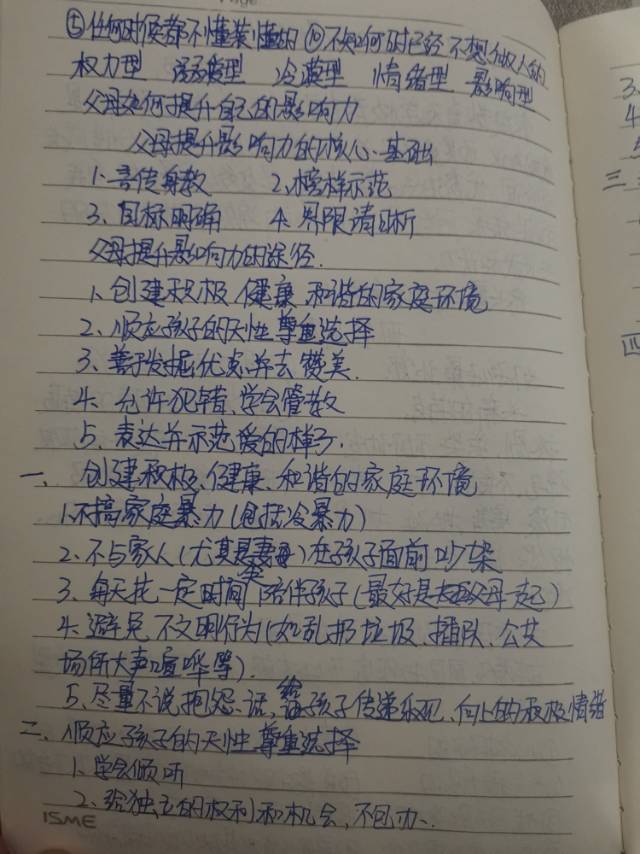 ⑤任何时候都不懂装懂的 ⑩不知何时已经不想做人的
权力型 冷漠型 情绪型 影响型
父母如何提升自己的影响力
父母提升影响力的核心、基础
1、言传身教 2、榜样示范
3、目标明确 4、界限清晰
父母提升影响力的途径.
1、创建积极、健康、和谐的家庭环境
2、顺应孩子的天性尊重选择
3、善于发掘优点并去赞美.
4、允许犯错、学会管教
5、表达并示范爱的样子.
一、创建积极、健康、和谐的家庭环境
1.不搞家庭暴力(包括冷暴力)
2、不与家人(尤其是妻)在孩子面前吵架
3、每天花一定时间陪伴孩子(最好是父母一起)
4、避免不文明行为(如乱扔垃圾、插队、公共
场所大声喧哗等).
5、尽量不说抱怨话,给孩子传递乐观、向上的积极情绪
二、顺应孩子的天性尊重选择
1、学会倾听
2、给独立的权利和机会,不包办、
ISME
3、
4
三、
四